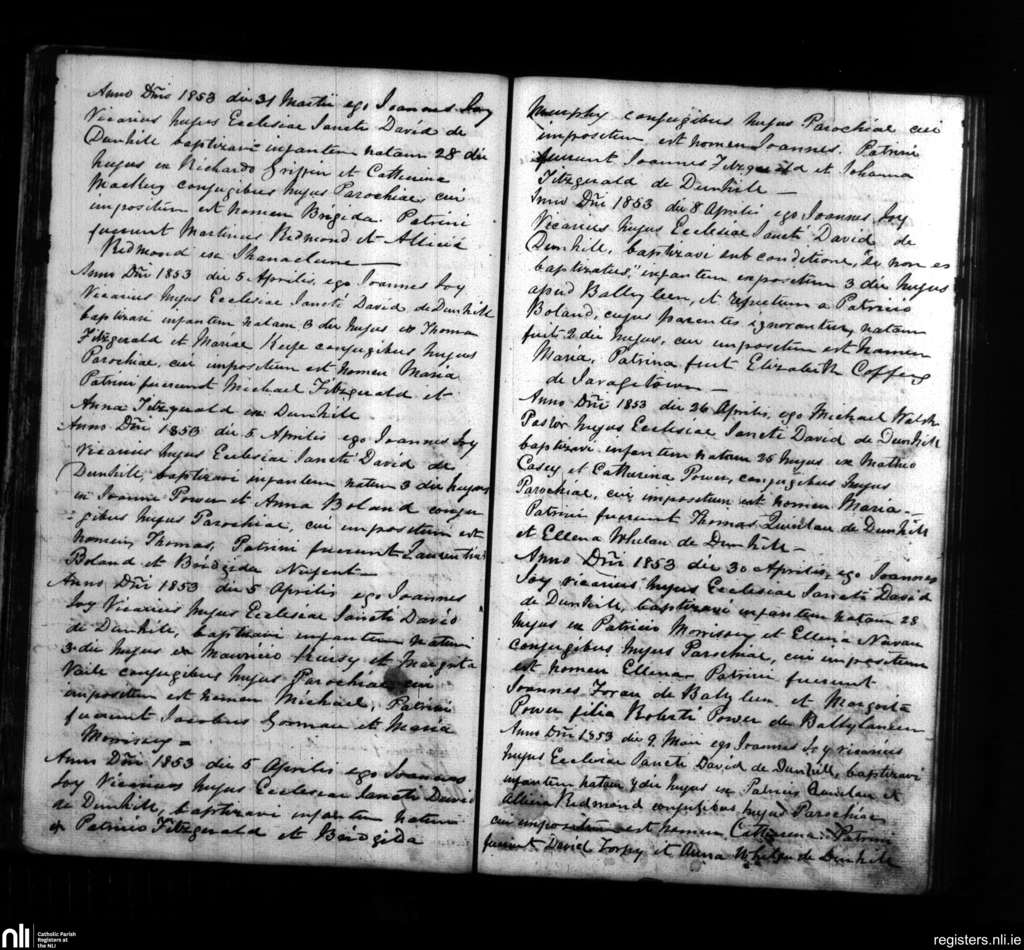 Anno Dñi 1853 die 31 Martii ego Joannes Joy
Vicarius hujus Ecclesiae Sancti David de
Dunhill baptizavi infantem natam 28 die
hujus ex Richardo Griffin et Catherina
conjugibus hujus Parochiae, cui
impositum est nomen Brigida. Patrini
fuerunt Martinus Redmond et Allicia
Redmond ex Shanaclune —
Anno Dñi 1853 die 5 Aprilis, ego Joannes Joy
Vicarius hujus Ecclesiae Sancti David de Dunhill
baptizavi infantem natam 3 die hujus ex Thoma
Fitzgerald et Maria Keefe conjugibus hujus
Parochiae, cui impositum est nomen Maria
Patrini fuerunt Michael Fitzgerald et
Anna Fitzgerald ex Dunhill —
Anno Dñi 1853 die 5 Aprilis ego Joannes Joy
Vicarius hujus Ecclesiae Sancti David de
Dunhill, baptizavi infantem natum 3 die hujus
ex Joanne Power et Anna Boland conju
-gibus hujus Parochiae, cui impositum est
nomen Thomas, Patrini fuerunt Laurentius
Boland et Birdgida Nugent —
Anno Dñi 1853 die 5 Aprilis ego Joannes
Joy Vicarius hujus Ecclesiae Sancti David
de Dunhill, baptizavi infantem natum
3 die hujus ex Mauricio et Margrita
Vaile conjugibus hujus Parochiae cui
impositum est nomen Michael, Patrini
fuerunt Jacobus Gorman et Maria
Morrissey =
Anno Dñi 1853 die 5 Aprilis ego Joannes
Joy Vicarius hujus Ecclesiae Sancti David
de Dunhill, baptizavi infantem natum
ex Patricio Fitzgerald et Birdgida
Murphy conjugibus hujus Parochiae cui
impositum est nomen Joannes. Patrini
fuerunt Joannes Fitzgerald et Johanna
Fitzgerald de Dunhill —
Anno Dñi 1853 die 8 Aprilis ego Joannes Joy
Vicarius hujus Ecclesiae Sancti David de
Dunhill, baptizavi sub conditione, "Si non es
baptizatus," infantem expositum 3 die hujus
apud Ballyleen, et repertum a Patricio
Boland, cujus parentes ignorantur, natam
fuit 2 die hujus, cui impositum est nomen
Maria, Patrina fuit Elizabeth Coffey
de Savagetown —
Anno Dñi 1853 die 26 Aprilis, ego Michael Walsh
Pastor hujus Ecclesiae Sancti David de Dunhill
baptizavi infantem natam 25 hujus ex Matheo
Casey et Catharina Power, conjugibus hujus
Parochiae, cui impositum est nomen Maria —
Patrini fuerunt Thomas Quinlan de Dunhill
et Ellena Whelan de Dunhill —
Anno Dñi 1853 die 30 Aprilis, ego Joannes
Joy vicarius hujus Ecclesiae Sancti David
de Dunhill, baptizavi infantem natam 28
hujus ex Patricio Morrissey et Ellena Navan
conjugibus hujus Parochiae, cui impositum
est nomen Ellena. Patrini fuerunt
Joannes Foran de Ballyleen et Margrita
Power filia Roberti Power de Ballylaneen —
Anno Dñi 1853 die 9 Maii ego Joannes Joy vicarius
hujus Ecclesiae Sancti David de Dunhill, baptizavi
infantem natam 7 die hujus ex Patricio Quinlan et
Allicia Redmond conjugibus hujus Parochiae
cui impositum est nomen Catherina. Patrini
fuerunt David Torpy et Anna Whelan de Dunhill
nli
Catholic Parish
Registers at
the NLI
registers.nli.ie